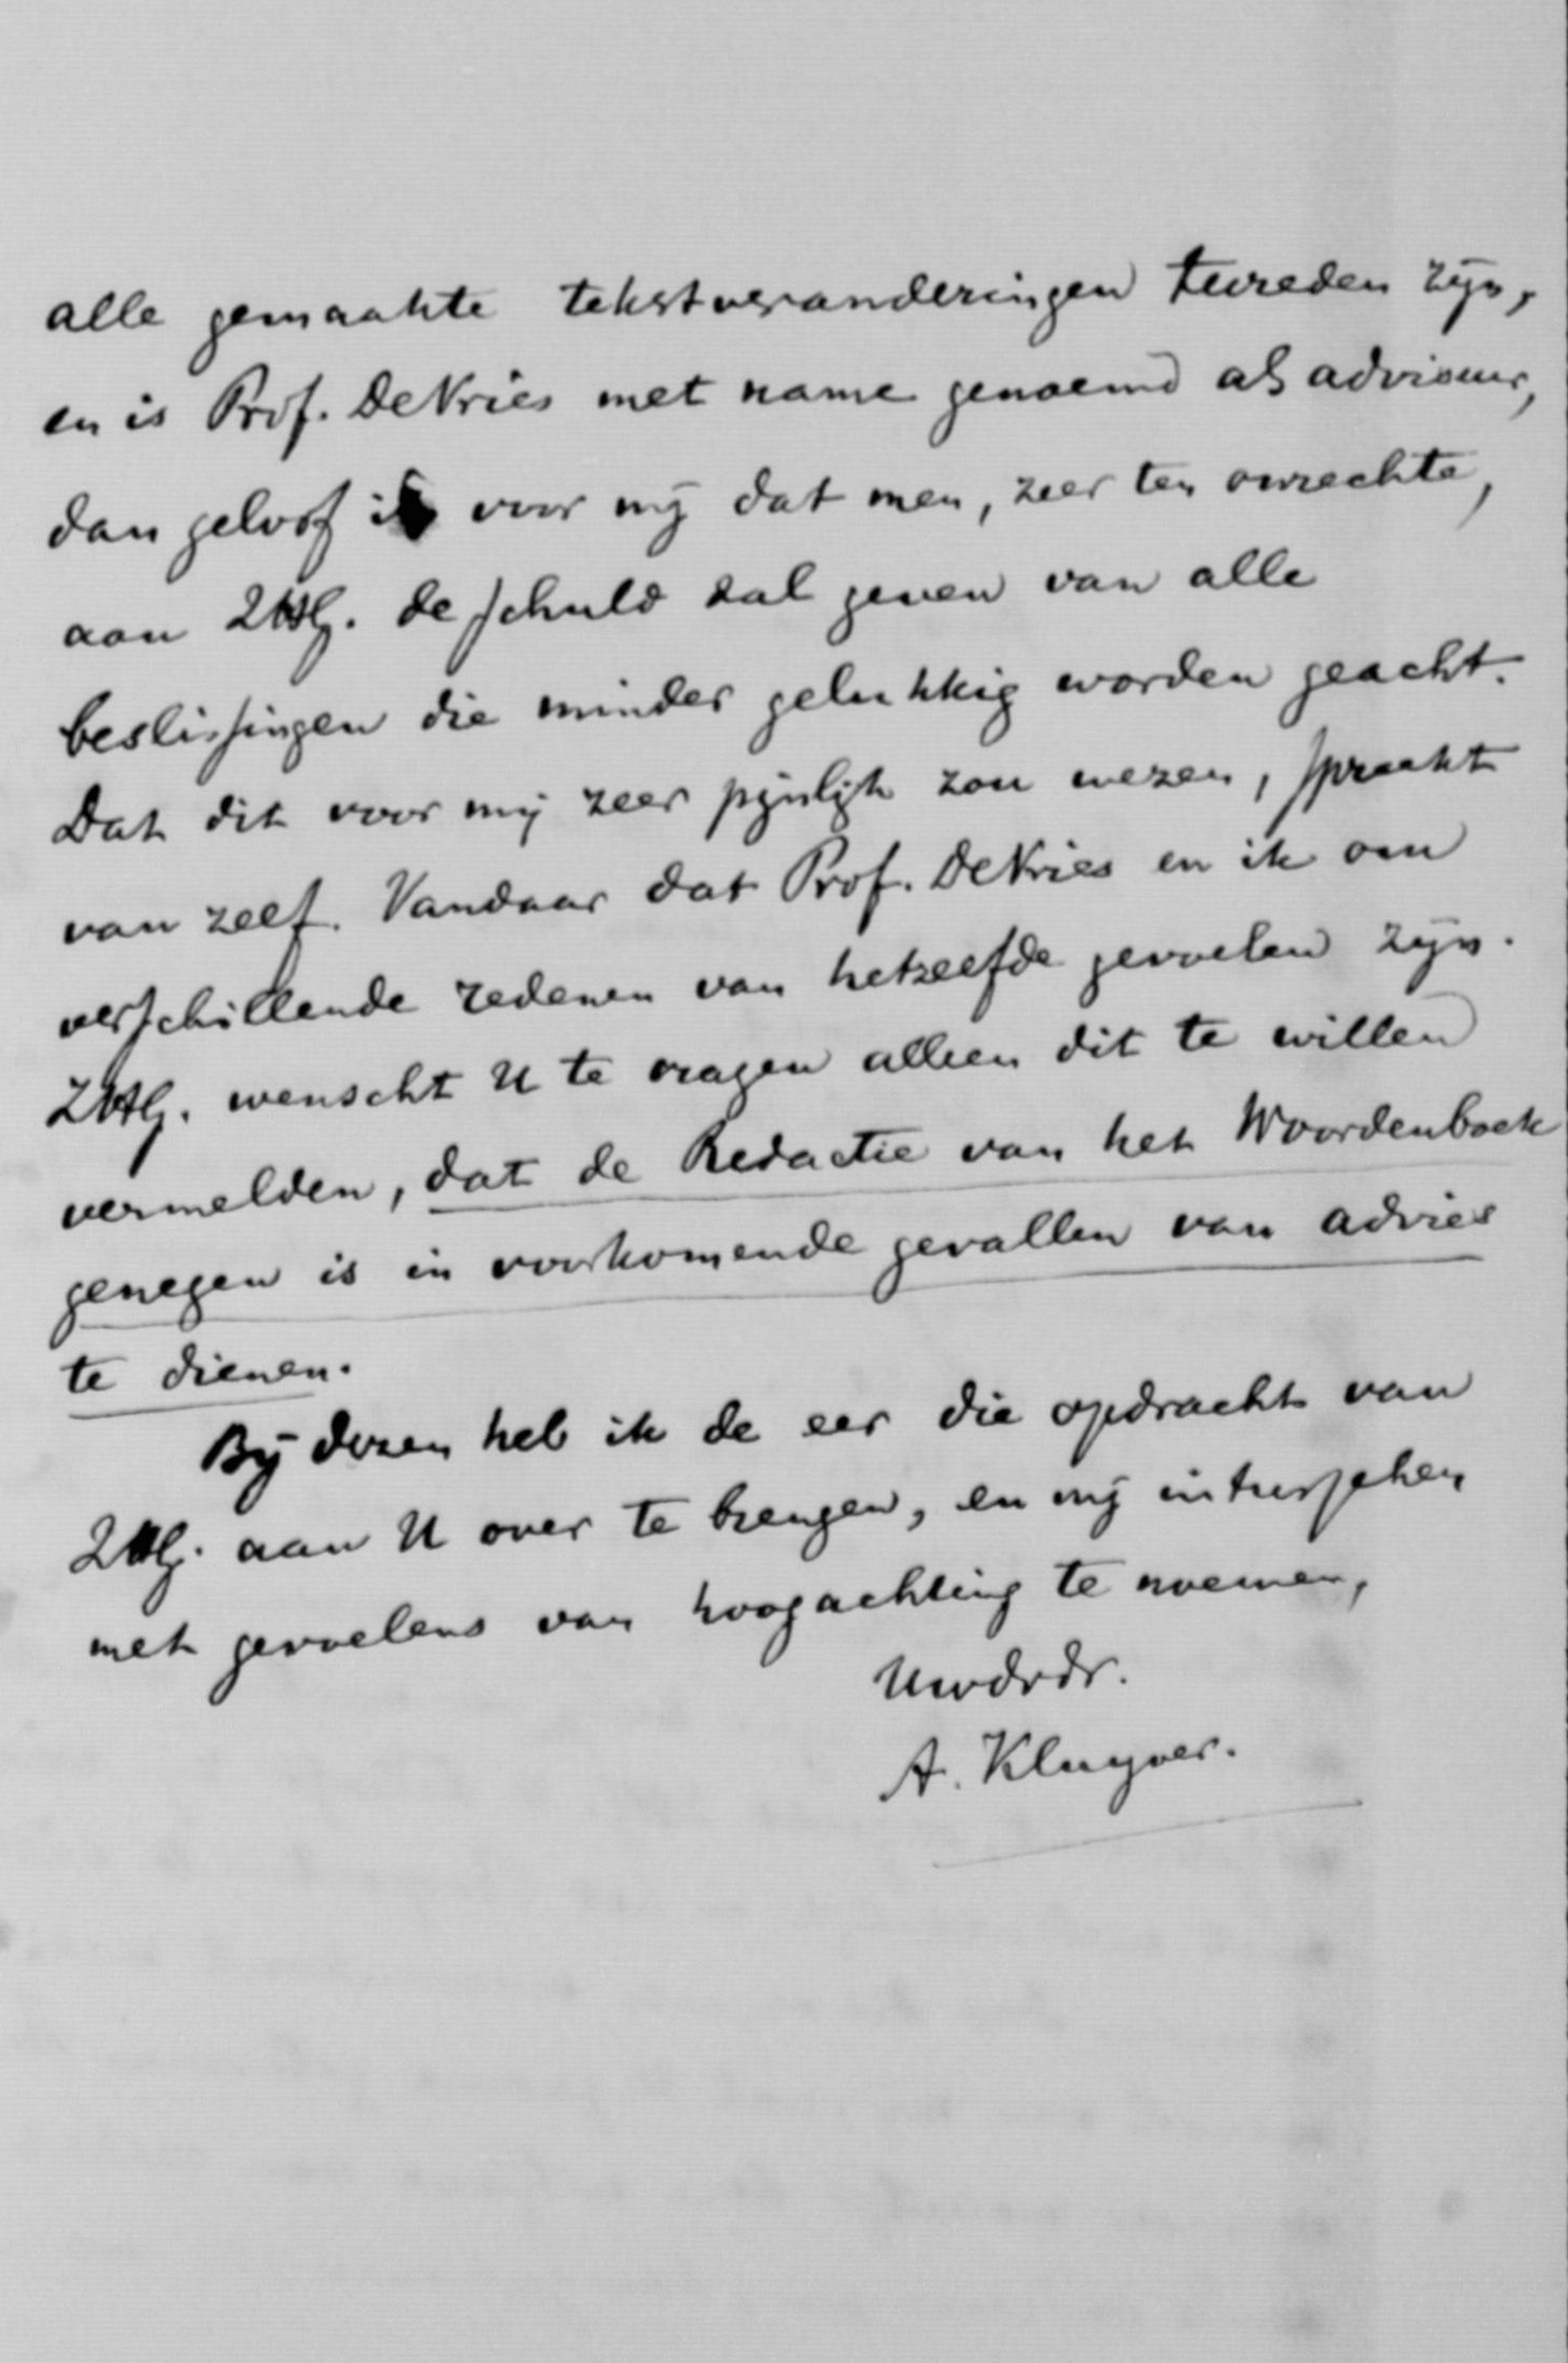 alle gemaakte tekstveranderingen tevreden zijn,
en is Prof. De Vries met name genoemd als adviseur,
dan geloof ik voor mij dat men, zeer ten onrechte,
aan ZHG. de schuld zal geven van alle
beslissingen die minder gelukkig worden geacht.
Dat dit voor mij zeer pijnlijk zou wezen, spreekt
van zelf. Vandaar dat Prof. De Vries en ik om
verschillende redenen van hetzelfde gevoelen zijn.
ZHG. wenscht U te vragen alleen dit te willen
vermelden, dat de Redactie van het Woordenboek
genegen is in voorkomende gevallen van advies
te dienen.
Bij dezen heb ik de eer die opdracht van
ZHG. aan U over te brengen, en mij intusschen
met gevoelens van hoogachting te noemen,
Uwdvdr.
A. Kluyver.